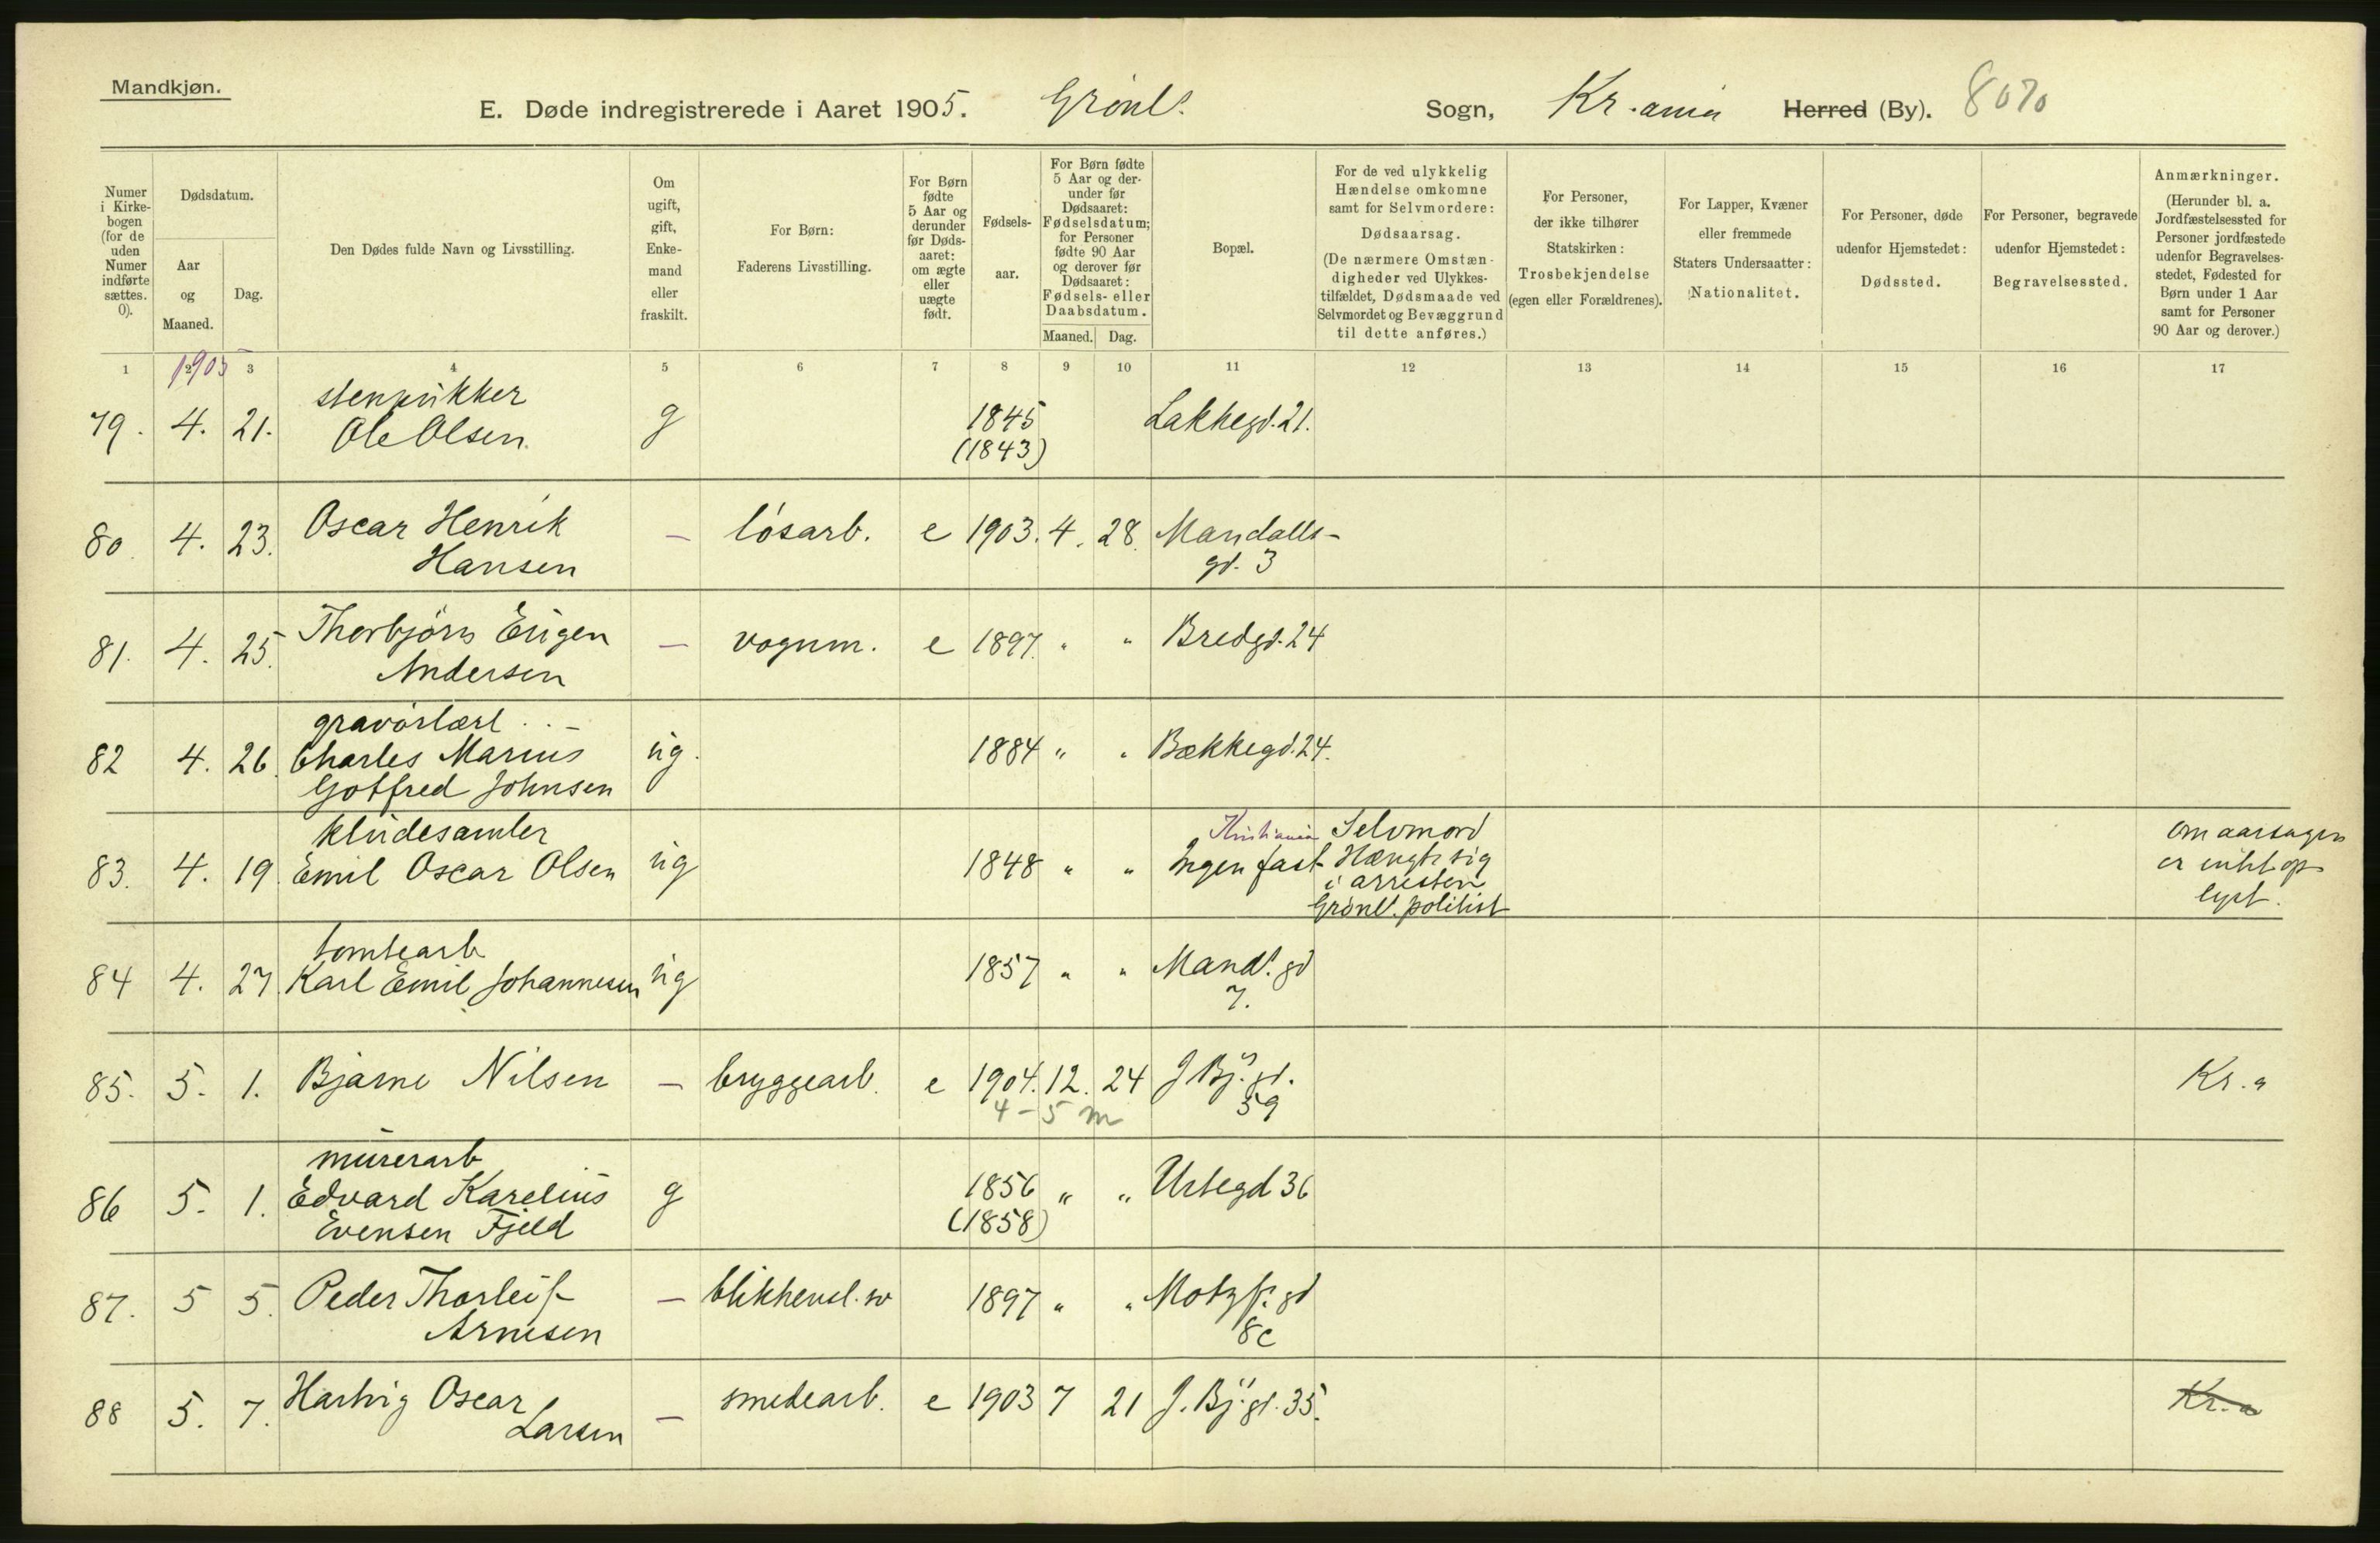 Mandkjøn.
E. Døde indregistrerede i Aaret 1905. Grønl. Sogn, Kr.ania Herred (By). 8070
Numer i Kirke-bogen (for de uden Numer indførte sættes. 0).
Dødsdatum.
Aar og Maaned.
Dag.
Den Dødes fulde Navn og Livsstilling.
Om ugift, gift, Enke-mand eller fraskilt.
For Børn: Faderens Livsstilling.
For Børn fødte 5 Aar og derunder før Døds-aaret: om ægte eller uægte født.
Fødsels-aar.
For Børn fødte 5 Aar og der-under før Dødsaaret: Fødselsdatum; for Personer fødte 90 Aar og derover før Dødsaaret: Fødsels- eller Daabsdatum.
Maaned. Dag.
Bopæl.
For de ved ulykkelig Hændelse omkomne samt for Selvmordere: Dødsaarsag. (De nærmere Omstæn-digheder ved Ulykkes-tilfældet, Dødsmaade ved Selvmordet og Bevæggrund til dette anføres.)
For Personer, der ikke tilhører Statskirken: Trosbekjendelse (egen eller Forældrenes).
For Lapper, Kvæner eller fremmede Staters Undersaatter: Nationalitet.
For Personer, døde udenfor Hjemstedet: Dødssted.
For Personer, begravede udenfor Hjemstedet: Begravelsessted.
Anmærkninger. (Herunder bl. a. Jordfæstelsessted for Personer jordfæstede udenfor Begravelses-stedet, Fødested for Børn under 1 Aar samt for Personer 90 Aar og derover.)
1 2 3 4 5 6 7 8 9 10 11 12 13 14 15 16 17
1905
stenpukker
79. 4. 21. Ole Olsen g 1845 Lakkegd. 21.
(1843)
80. 4. 23. Oscar Henrik — løsarb. e 1903. 4. 28. Mandalls-
Hansen gd. 3
81. 4. 25. Thorbjørn Eugen — vognm. e 1897. " " Bredgd. 24
Andersen
gravørlærl
82 4. 26. Charles Marius ug. 1884 " " Bækkegd. 24.
Gotfred Johnsen
kludesamler Kristiania Selvmord om aarsagen
83. 4. 19. Emil Oscar Olsen ug 1848 " " Ingen fast Hængte sig er intet op-
i arresten lyst.
Grønl. polit
tomtearb
84 4. 27. Karl Emil Johannesen ug 1857 " " Mand. gd
7.
85. 5. 1. Bjarne Nilsen — bryggearb. e 1904. 12. 24 J Bj. gd. Kr. a
4-5 m 59
murerarb
86 5. 1. Edvard Karelius g 1856 " " Urtegd 36
Evensen Fjeld (1858)
87. 5 5. Peder Thorleif — blikkensl. sv 1897 " " Motzf. gd
Arnesen 8c
88 5. 7. Hartvig Oscar — smedearb. e 1903 7 21 J. Bj. gd. 35. Kr. a
Larsen